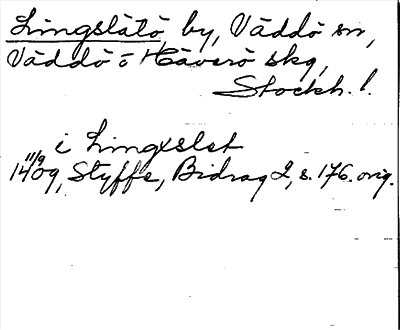 Lingslätö by, Väddö sn,
Väddö o Häverö skg,
Stockh. l.
i Lingxslet
11/9 1409, Styffe, Bidrag 2, s. 176. orig.